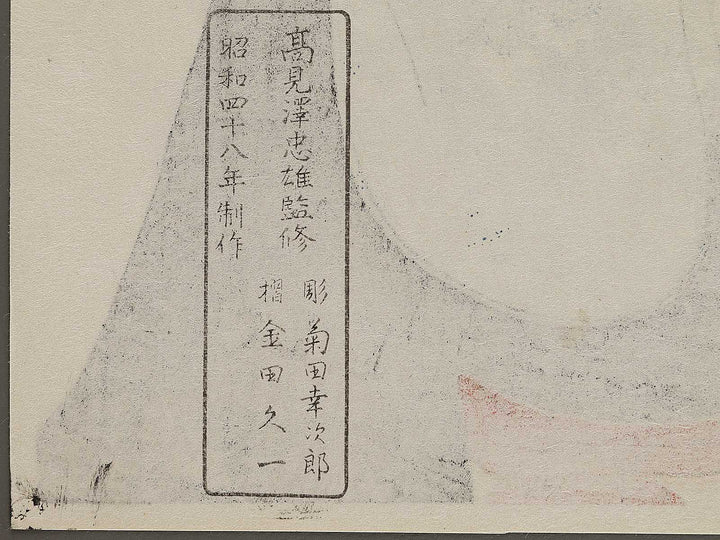 高見澤忠雄監修
彫 菊田幸次郎
摺 金田久一
昭和四十八年制作